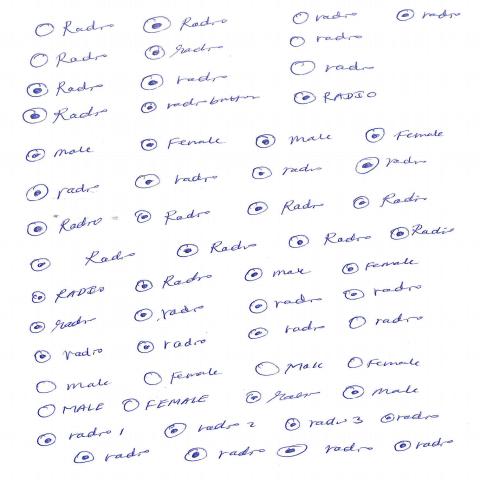 ○ Radio ⦿ Radio ○ radio ⦿ radio
○ Radio ⦿ radio ○ radio
⦿ Radio ⦿ radio ○ radio
⦿ Radio ⦿ radio button ⦿ RADIO
⦿ male ⦿ Female ⦿ male ⦿ Female
⦿ radio ⦿ radio ⦿ radio ⦿ radio
⦿ Radio ⦿ Radio ⦿ Radio ⦿ Radio
⦿ Radio ⦿ Radio ⦿ Radio ⦿ Radio
⦿ RADIO ⦿ Radio ⦿ male ⦿ Female
⦿ radio ⦿ radio ⦿ radio ⦿ radio
⦿ radio ⦿ radio ⦿ radio ○ radio
○ male ○ Female ○ Male ○ Female
○ MALE ○ FEMALE ⦿ radio ⦿ male
⦿ radio 1 ⦿ radio 2 ⦿ radio 3 ⦿ radio
⦿ radio ⦿ radio ⦿ radio ⦿ radio